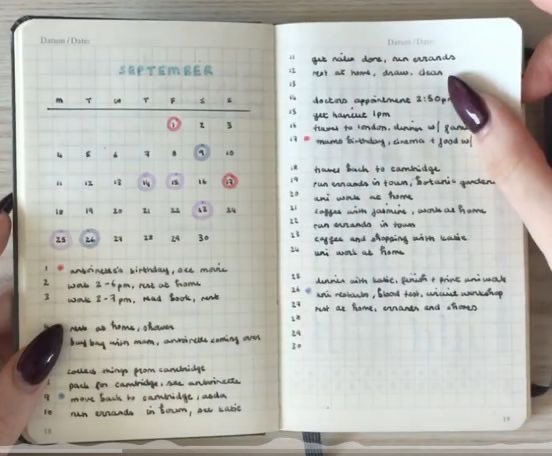 Datum / Date:
SEPTEMBER
M T W T F S S
1 2 3
4 5 6 7 8 9 10
11 12 13 14 15 16 17
18 19 20 21 22 23 24
25 26 27 28 29 30
1 antoinette's birthday, see movie
2 work 2-6pm, rest at home
3 work 2-7pm, read book, rest
rest at home, shower
buy bag with mum, antoinette coming over
collect things from cambridge
pack for cambridge, see antoinette
9 move back to cambridge, asda
10 run errands in town, see katie
18
Datum / Date:
11 get nails done, run errands
12 rest at home, draw, clean
13
14 doctors appointment 2:30pm
15 get haircut 1pm
16 travel to london, dinner w/
17 mums birthday, cinema + food w/
18 travel back to cambridge
19 run errands in town, botanic gardens
20 uni work at home
21 coffee with jasmine, work at home
22 run errands in town
23 coffee and shopping with katie
24 uni work at home
25 dinner with katie, finish + print uni work
26 uni restarts, blood test, workshop
27 rest at home, errands and chores
28
29
30
19